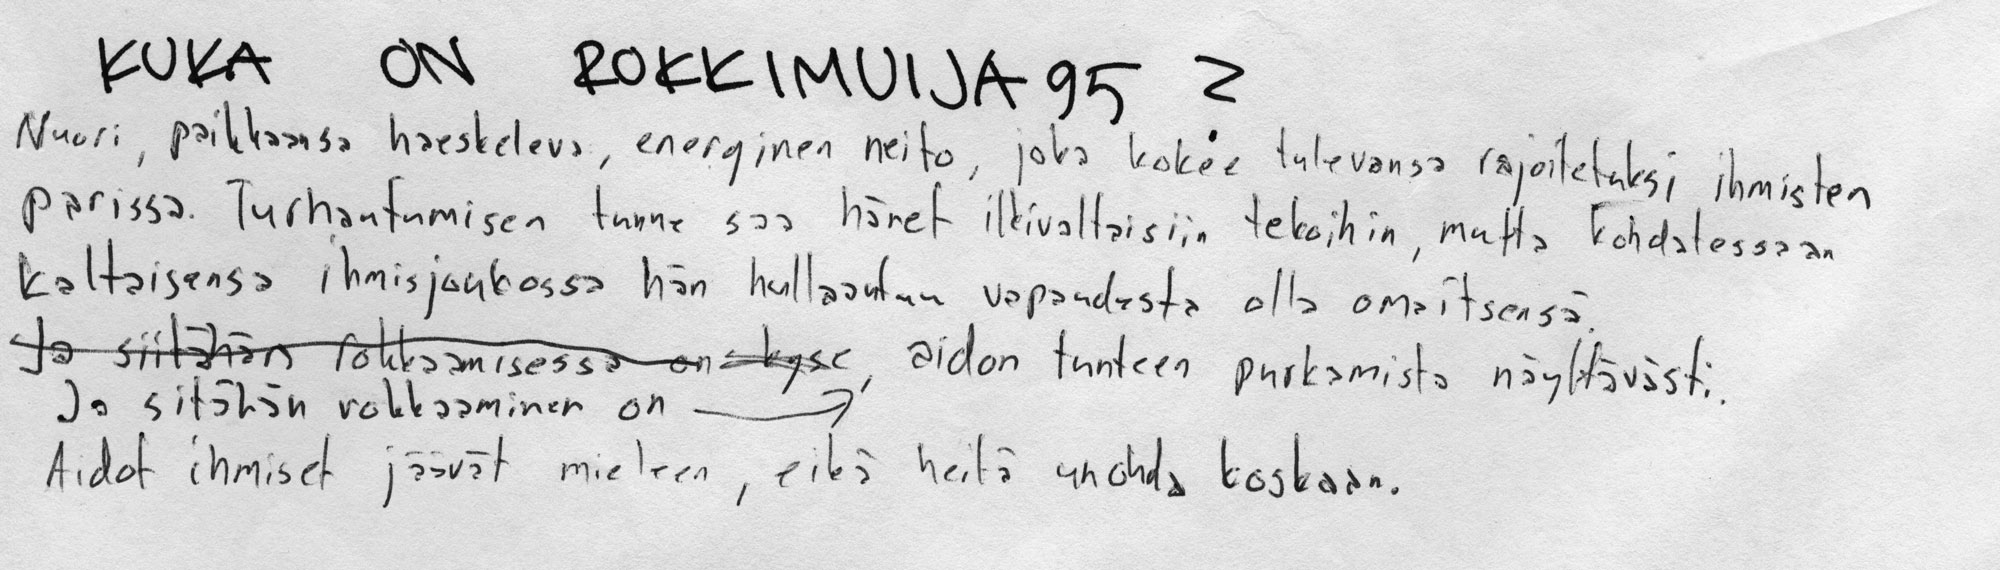 KUKA ON ROKKIMUIJA95?
Nuori, paikkaansa haeskeleva, energinen neito, joka kokee tulevansa rajoitetuksi ihmisten
parissa. Turhautumisen tunne saa hänet ilkivaltaisiin tekoihin, mutta kohdatessaan
kaltaisensa ihmisjoukossa hän hullaantuu vapaudesta olla omaitsensä.
Ja siitähän rokkaamisessa on kyse, aidon tunteen purkamista näyttävästi.
Ja sitähän rokkaaminen on
Aidot ihmiset jäävät mieleen, eikä heitä unohda koskaan.